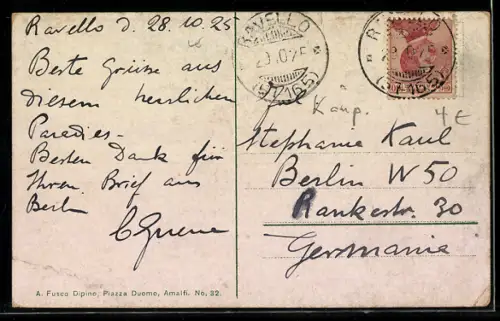 Ravello d. 28.10.25
Beste Grüsse aus
diesem herrlichen
Paradies.
Besten Dank für
Ihren Brief aus
Berl
RAVELLO
(57-165)
R
(57-165)
4 €
Stephanie Kaul
Berlin W 50
Rankestr. 30
Germania
A. Fusco Dipino, Piazza Duomo, Amalfi. No. 32.